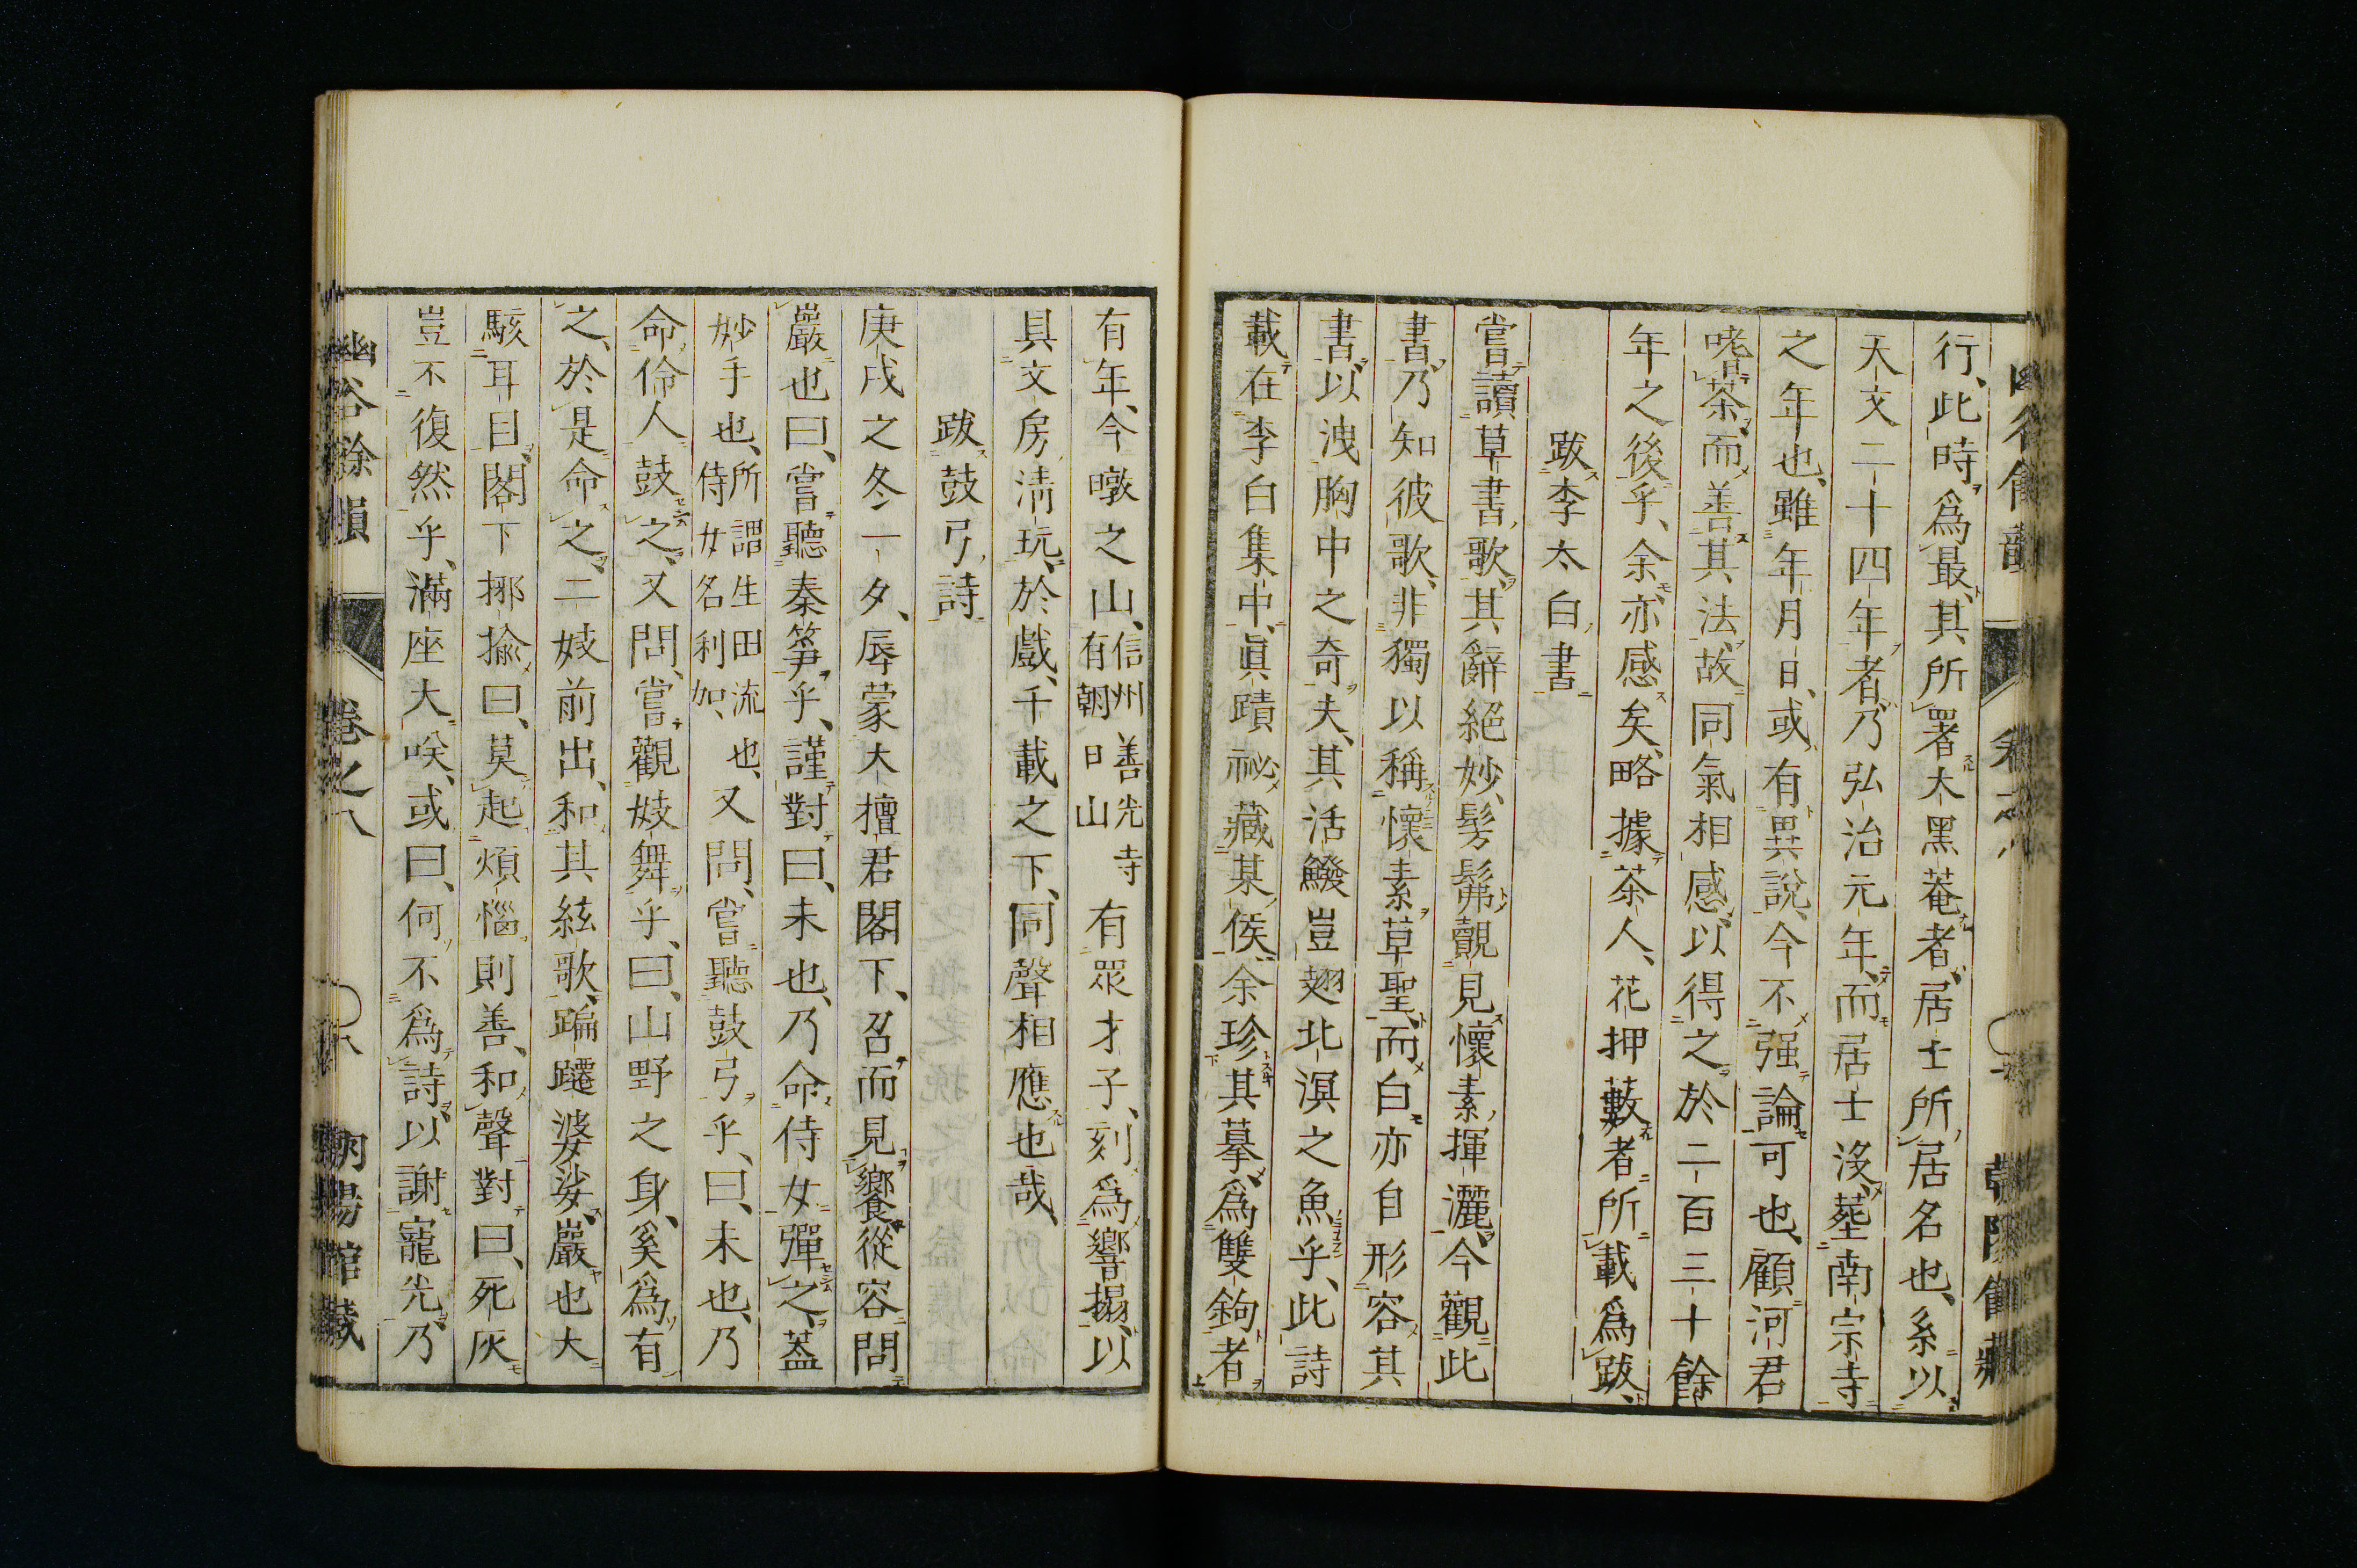 行、此時爲最、其所署大黑菴者、居士所居名也、系以
天文二十四年者、乃弘治元年、而居士沒、葬南宗寺
之年也、雖年月日、或有異說、今不强論可也、顧河君
嗜茶而善其法、故同氣相感、以得之於二百三十餘
年之後乎、余亦感矣、略據茶人、花押藪者所載爲跋、
跋李太白書
嘗讀草書歌、其辭絕妙、髣髴覿見懷素揮灑、今觀此
書、乃知彼歌、非獨以稱懷素草聖、而白亦自形容其
書、以洩胸中之奇夫、其活鱍豈翅北溟之魚乎、此詩
載在李白集中、眞蹟祕藏某侯、余珍其摹爲雙鉤者
有年、今暾之山、信州善光寺有朝日山有眾才子、刻爲響搨、以
具文房淸玩、於戲、千載之下、同聲相應也哉、
跋鼓弓詩
庚戌之冬一夕、辱蒙大擅君閣下、召而見饗、從容問
巖也曰、嘗聽秦箏乎、謹對曰、未也、乃命侍女彈之、蓋
妙手也、所謂生田流也、侍女名利如、又問、嘗聽鼓弓乎、曰、未也、乃
命伶人鼓之、又問、嘗觀妓舞乎、曰、山野之身、奚爲有
之、於是命之、二妓前出、和其絃歌、蹁躚婆娑、巖也大
駭耳目、閣下揶揄曰、莫起煩惱則善、和聲對曰、死灰
豈不復然乎、滿座大咲、或曰、何不爲詩、以謝寵光、乃
幽谷餘韻 卷之八 朝陽館藏